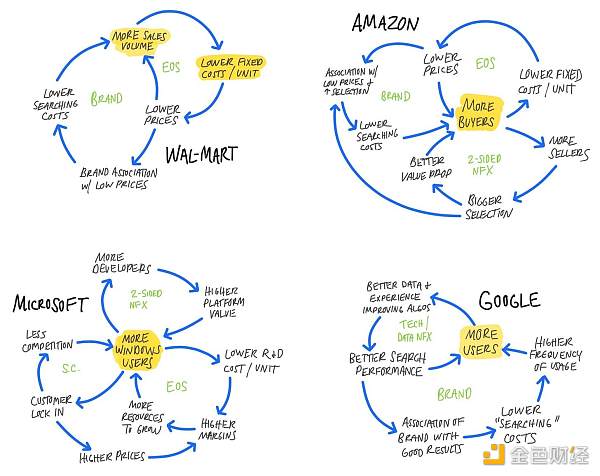 WAL-MART
MORE SALES
VOLUME
EOS
LOWER FIXED
COSTS/UNIT
LOWER
SEARCHING
COSTS
BRAND
LOWER
PRICES
BRAND ASSOCIATION
W/ LOW PRICES
AMAZON
LOWER
PRICES
EOS
ASSOCIATION W/
LOW PRICES +
↑ SELECTION
BRAND
LOWER FIXED
COSTS/UNIT
MORE
BUYERS
LOWER
SEARCHING
COSTS
MORE
SELLERS
BETTER
VALUE PROP
2-SIDED
NFX
BIGGER
SELECTION
MICROSOFT
MORE
DEVELOPERS
2-SIDED
NFX
HIGHER
PLATFORM
VALUE
LESS
COMPETITION
MORE
WINDOWS
USERS
LOWER R+D
COST/UNIT
S.C.
EOS
CUSTOMER
LOCK IN
MORE
RESOURCES
TO GROW
HIGHER
MARGINS
HIGHER PRICES
GOOGLE
BETTER DATA +
EXPERIENCE
IMPROVING ALGOS
TECH/
DATA NFX
MORE
USERS
HIGHER
FREQUENCY
OF USAGE
BETTER SEARCH
PERFORMANCE
BRAND
ASSOCIATION OF
BRAND WITH
GOOD RESULTS
LOWER
"SEARCHING"
COSTS
金色财经